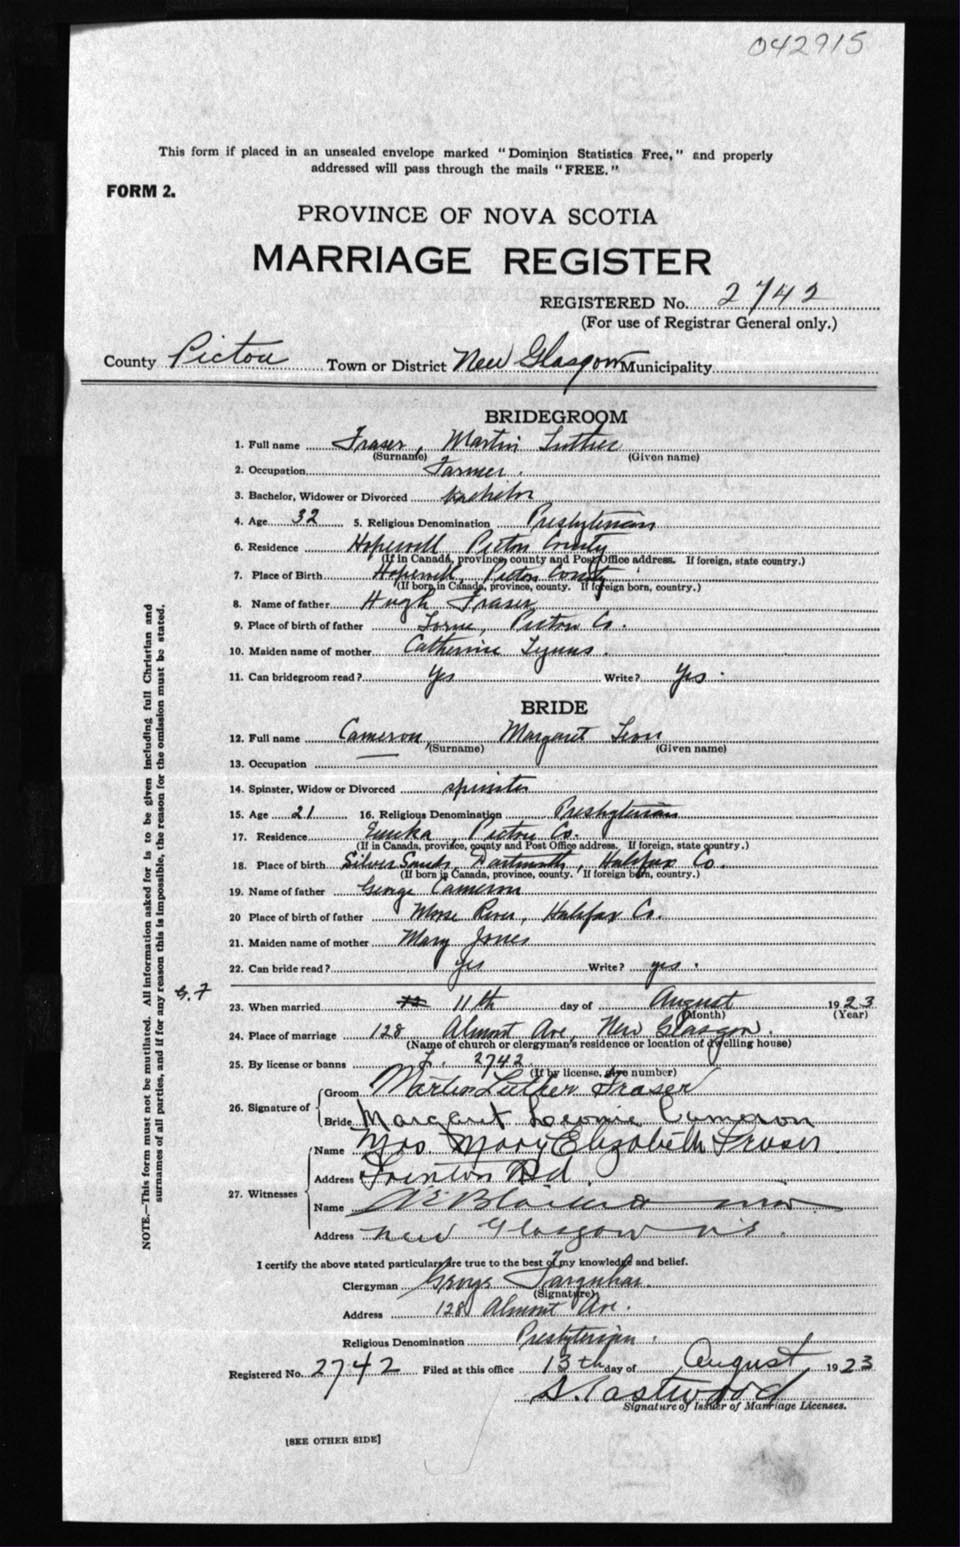 042915
This form if placed in an unsealed envelope marked "Dominion Statistics Free," and properly
addressed will pass through the mails "FREE."
FORM 2.
PROVINCE OF NOVA SCOTIA
MARRIAGE REGISTER
REGISTERED No. 2742
(For use of Registrar General only.)
County Pictou Town or District New Glasgow Municipality
BRIDEGROOM
1. Full name Fraser, Martin Luther
(Surname) (Given name)
2. Occupation Farmer.
3. Bachelor, Widower or Divorced bachelor
4. Age 32 5. Religious Denomination Presbyterian
6. Residence Hopewell Pictou County
(If in Canada, province, county and Post Office address. If foreign, state country.)
7. Place of Birth Hopewell, Pictou County
(If born in Canada, province, county. If foreign born, country.)
8. Name of father Hugh Fraser
9. Place of birth of father Lorne, Pictou Co.
10. Maiden name of mother Catherine
11. Can bridegroom read? Yes Write? Yes.
BRIDE
12. Full name Cameron, Margaret
(Surname) (Given name)
13. Occupation
14. Spinster, Widow or Divorced spinster
15. Age 21 16. Religious Denomination Presbyterian
17. Residence Eureka Pictou Co.
(If in Canada, province, county and Post Office address. If foreign, state country.)
18. Place of birth Silver Sands, Dartmouth, Halifax Co.
(If born in Canada, province, county. If foreign born, country.)
19. Name of father George Cameron
20 Place of birth of father Mose River, Halifax Co.
21. Maiden name of mother Mary Jones
22. Can bride read? yes Write? yes.
23. When married 11th day of August 1923
(Month) (Year)
24. Place of marriage 128 Almont Ave, New Glasgow.
(Name of church or clergyman's residence or location of dwelling house)
25. By license or banns L. 2742
(If by license, give number)
26. Signature of
Groom Martin Luther Fraser
Bride Margaret Leonie Cameron
27. Witnesses
Name Mrs Mary Elizabeth Fraser
Address Trenton Rd.
Name
Address New Glasgow N.S.
I certify the above stated particulars are true to the best of my knowledge and belief.
Clergyman George Farquhar
(Signature)
Address 128 Almont Ave.
Religious Denomination Presbyterian.
Registered No. 2742 Filed at this office 13th day of August 1923
S. Eastwood
Signature of Issuer of Marriage Licenses.
[SEE OTHER SIDE]
NOTE.—This form must not be mutilated. All information asked for is to be given including full Christian and
surnames of all parties, and if for any reason this is impossible, the reason for the omission must be stated.